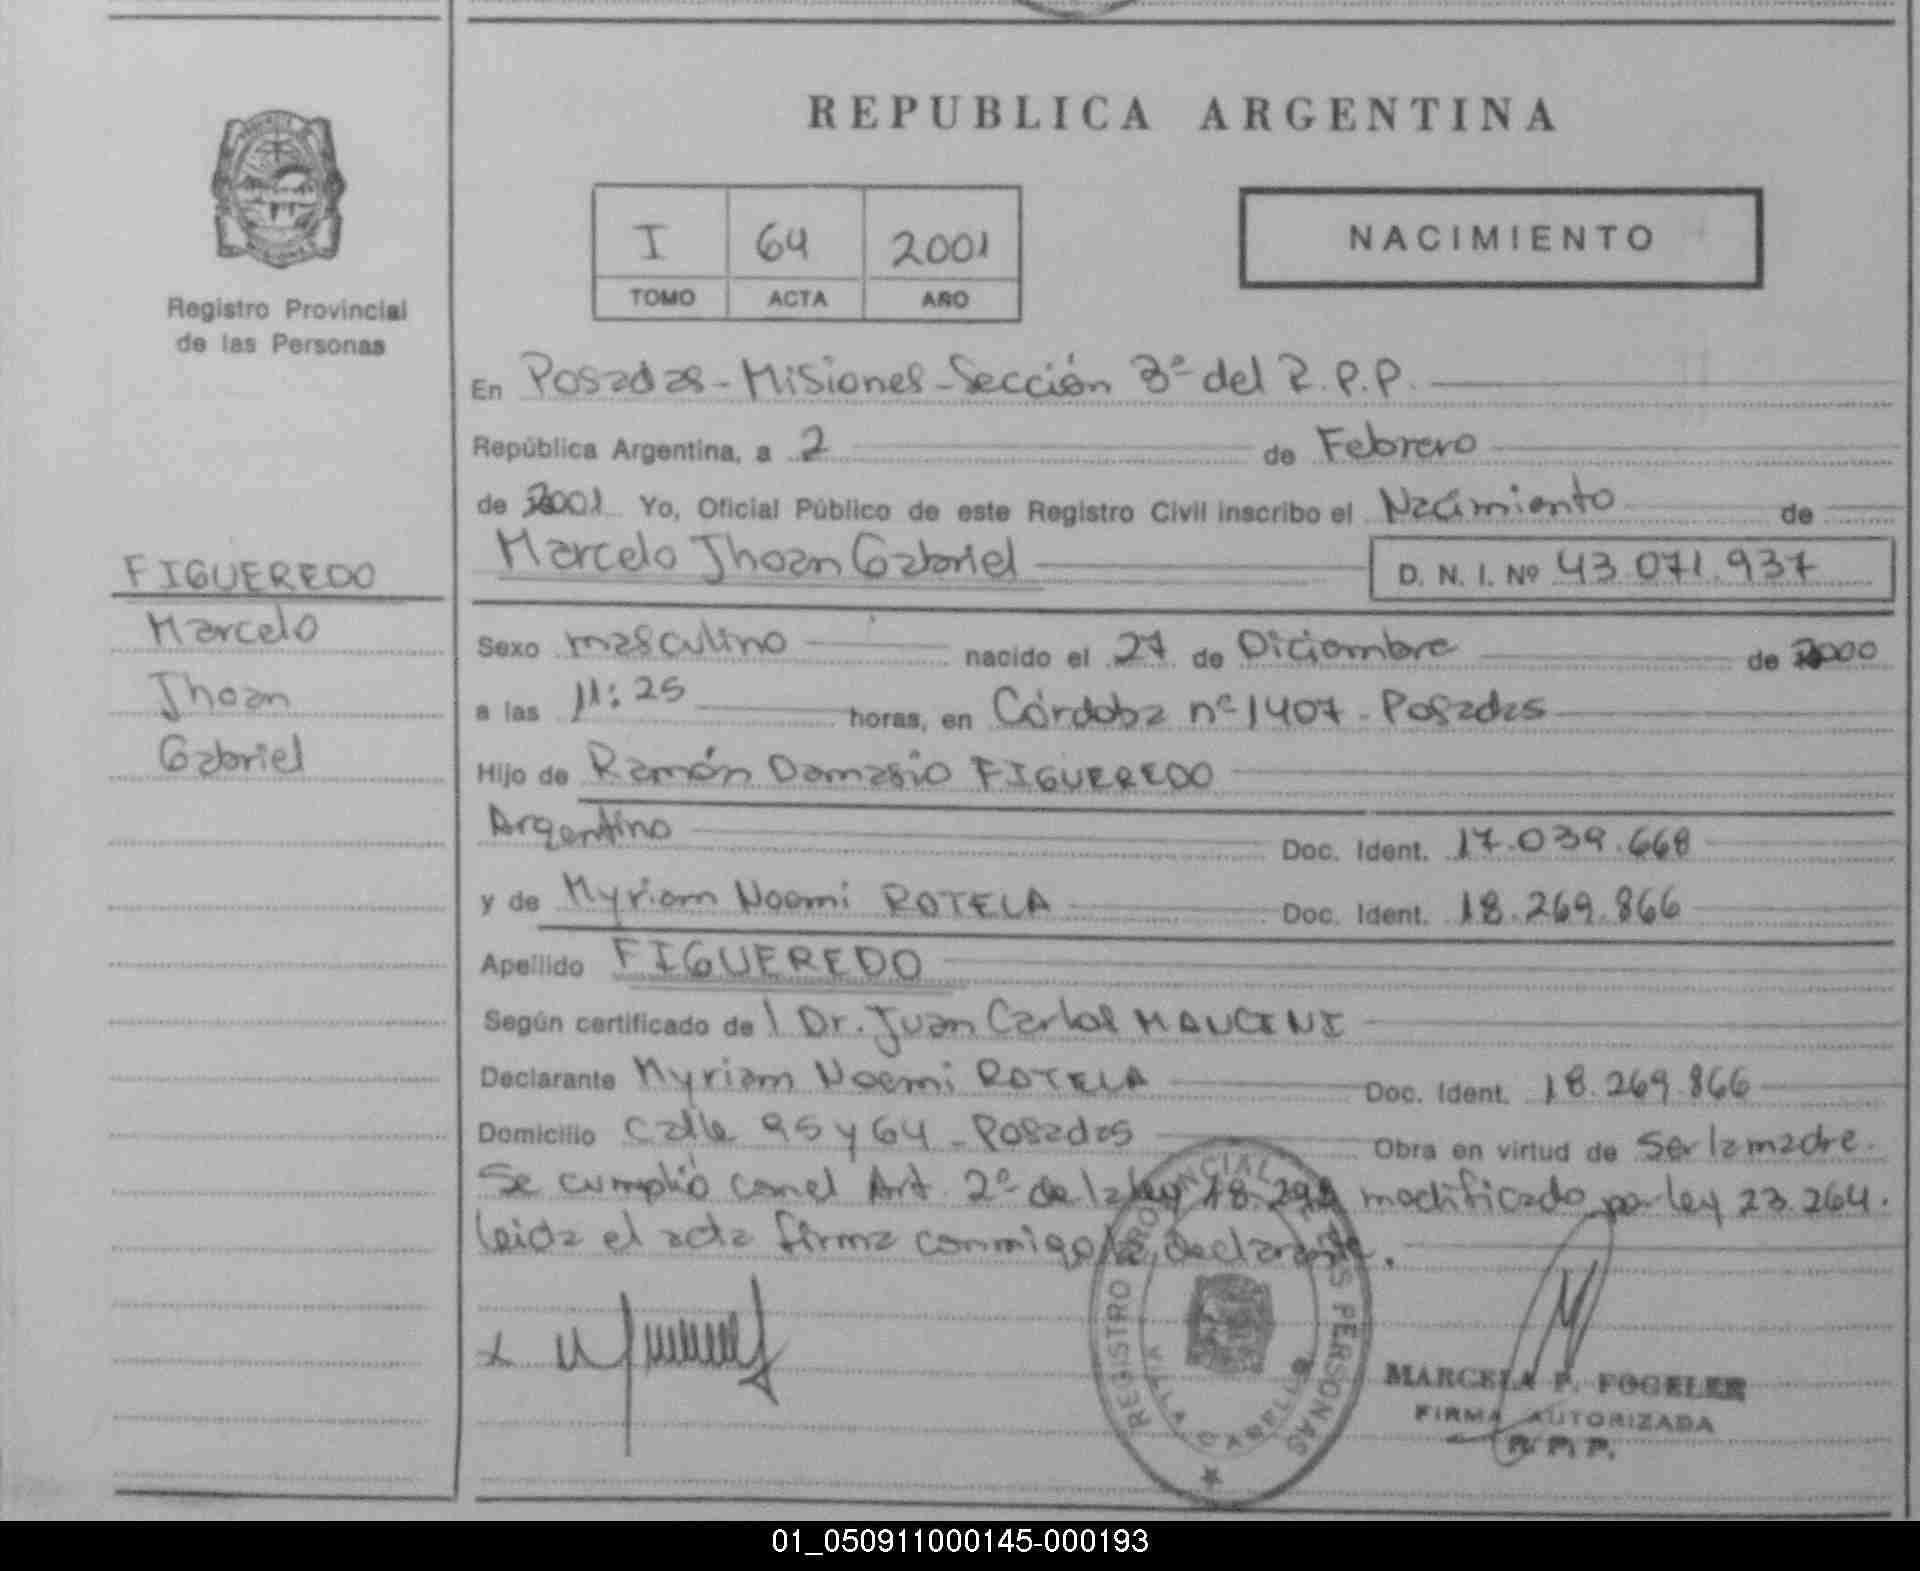 REPUBLICA ARGENTINA
I 64 2001
TOMO ACTA AÑO
NACIMIENTO
Registro Provincial
de las Personas
En Posadas - Misiones - Sección 3ª del R.P.P.
República Argentina, a 2 de Febrero
de 2001 Yo, Oficial Público de este Registro Civil inscribo el Nacimiento de
Marcelo Jhoan Gabriel D. N. I. Nº 43.071.937
FIGUEREDO
Marcelo
Jhoan
Gabriel
Sexo masculino nacido el 27 de Diciembre de 2000
a las 11:25 horas, en Córdoba nº 1407 - Posadas
Hijo de Ramón Damasio FIGUEREDO
Argentino Doc. Ident. 17.039.668
y de Myriam Noemi ROTELA Doc. Ident. 18.269.866
Apellido FIGUEREDO
Según certificado de l Dr. Juan Carlos MANCINI
Declarante Myriam Noemi ROTELA Doc. Ident. 18.269.866
Domicilio Calle 95 y 64 - Posadas Obra en virtud de ser la madre.
Se cumplió con el Art. 2º de la ley 18.248 modificado por ley 23.264.
leida el acta firma conmigo la declarante.
REGISTRO PROVINCIAL DE LAS PERSONAS
VILLA CABELLO
MARCELA F. FOGELER
FIRMA AUTORIZADA
R. P. P.
01_050911000145-000193